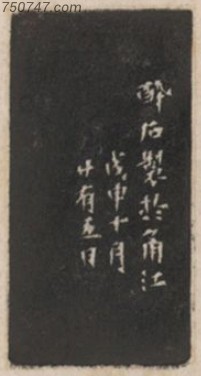 750747.com
醉后製於甬江
戊申十月
廿有五日